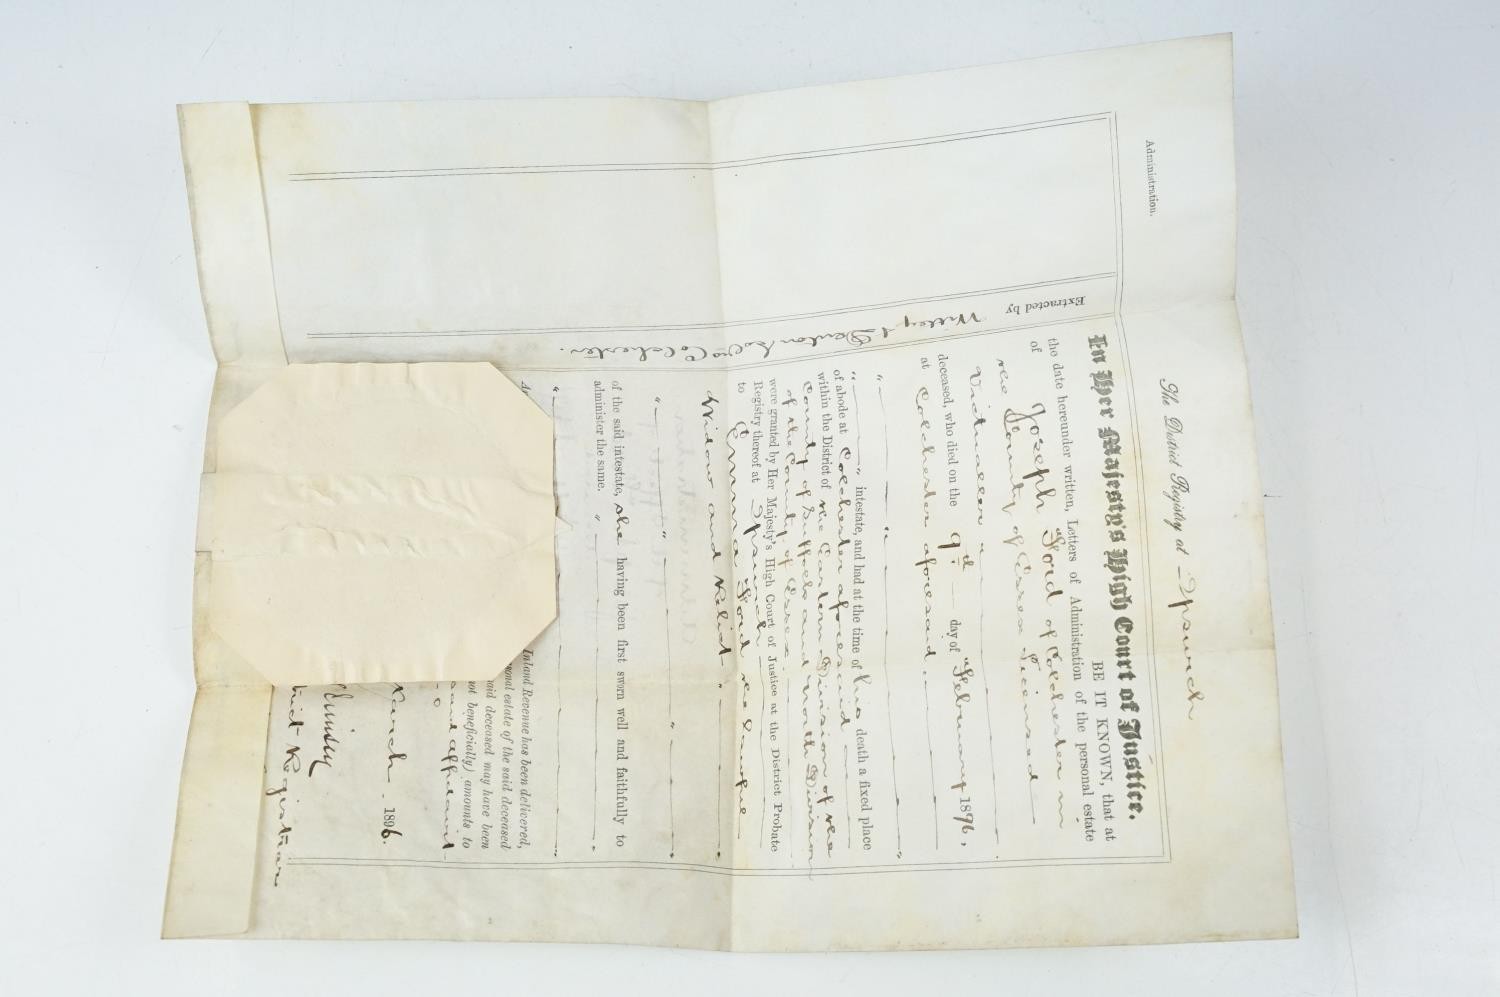 Administration.
The District Registry at Ipswich
In Her Majesty's High Court of Justice.
BE IT KNOWN, that at
the date hereunder written, Letters of Administration of the personal estate
of Joseph Ford of Colchester in
the County of Essex Licensed
Victualler
deceased, who died on the 9th day of February 1896,
at Colchester aforesaid
intestate, and had at the time of his death a fixed place
of abode at Colchester aforesaid
within the District of the Eastern Division of the
County of Suffolk and North Division
of the County of Essex
were granted by Her Majesty's High Court of Justice at the District Probate
Registry thereof at Ipswich
to Emma Ford the lawful
Widow and Relict
of the said intestate, she having been first sworn well and faithfully to
administer the same.
Inland Revenue has been delivered,
estate of the said deceased
said deceased may have been
not beneficially) amounts to
and affidavit
March 1896.
Registrar
Extracted by Willey & Denton Solrs Colchester.